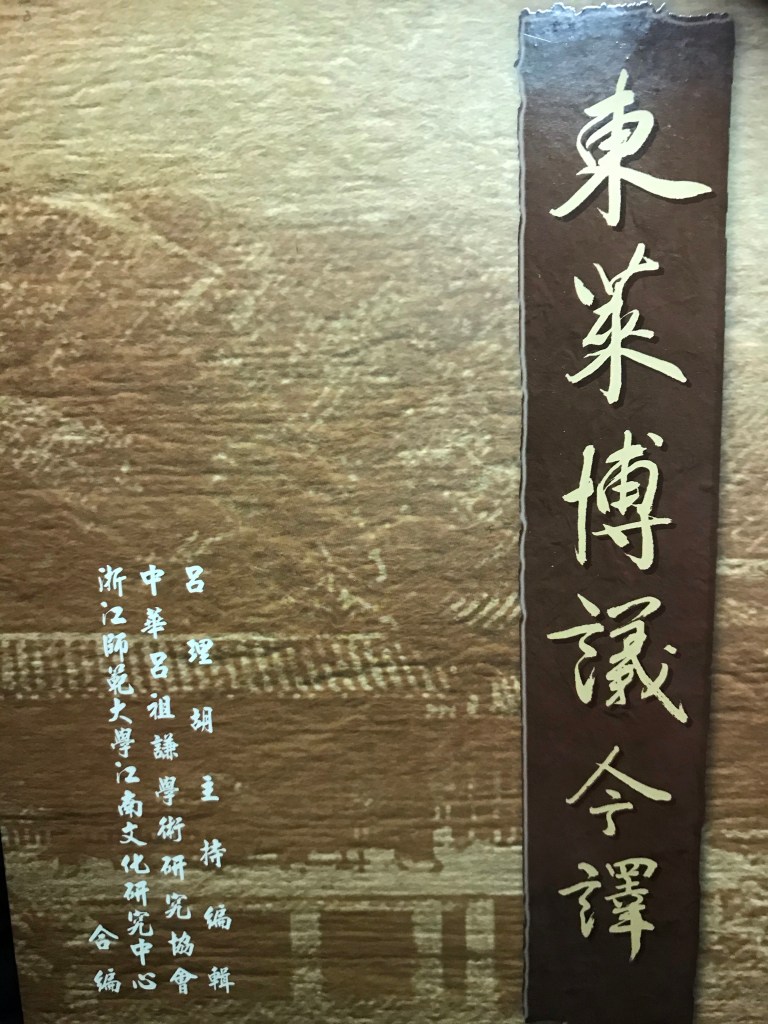 東萊博議今譯
呂理胡主持編輯
中華呂祖謙學術研究協會
浙江師範大學江南文化研究中心
合編